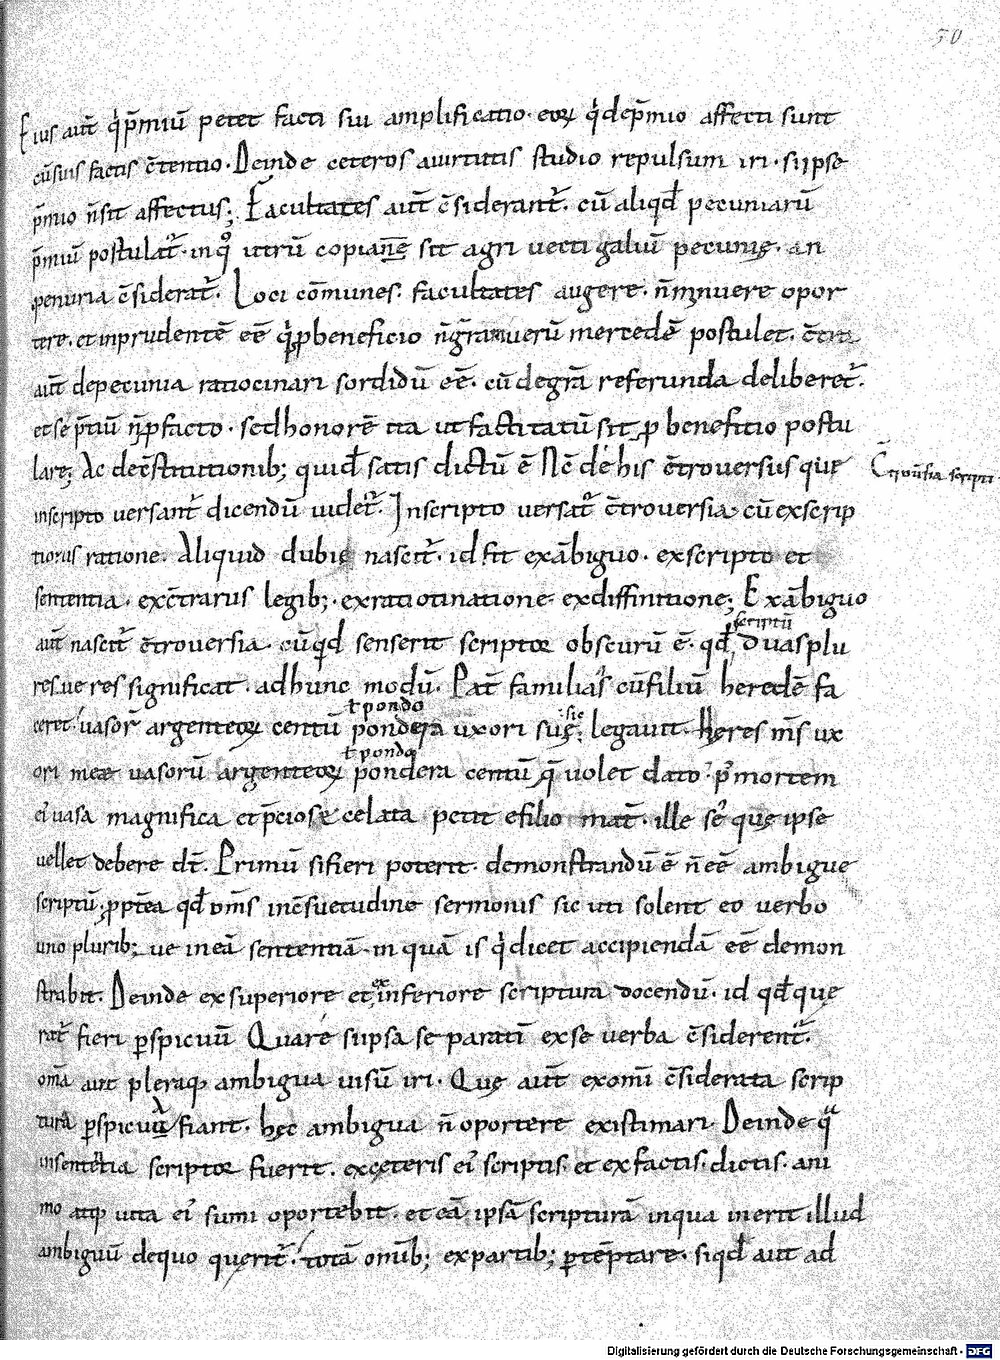 50
Eius aut̄ q̇ p̄miū petet facti sui amplificatio· eoꝝ q̇ de p̄mio affecti sunt
cū suis factis c̄tentio· Deinde ceteros a uirtutis studio repulsum iri· si ipse
p̄mio n̄ sit affectus; Facultates aut̄ c̄siderant᷑· cū aliqđ pecuniarū
p̄miū postulat᷑· in q̊ utrū copiane sit agri uectigaliū pecunię· an
penuria c̄siderat᷑· Loci cōmunes· facultates augere· n̄ minuere opor
tere· et inprudentē eē q̇ p beneficio n̄ gr̄am uerū mercedē postulet· c̄tra
aut̄ de pecunia ratiocinari sordidū eē· cū de gr̄a referunda deliberet᷑·
et se p̄tiū n̄ ꝓ facto· sed honorē ita ut factitatū sit ꝓ benefitio postu
lare; Ac de c̄stitutionib; quid̄ satis dictū ē Nc̄ de his c̄trouersiis que
C̄trouersia scripti
in scripto uersant᷑ dicendū uidet᷑· In scripto uersat᷑ c̄trouersia cū ex scrip
tionis ratione· Aliquid dubię nascit᷑· id fit ex ābiguo· ex scripto et
sententia· ex c̄trariis legib;· ex ratiotinatione· ex diffinitione; Ex ābiguo
aut̄ nascit᷑ c̄trouersia· cū qđ senserit scriptor obscurū ē· qđ scriptū duas plu
res ue res significat· ad hunc modū· Pat̄ familias cū filiū heredē fa
ceret· uasor̄ argenteoꝝ centū pondera uxori suę sic legauit· Heres m̄s ux
ł pondo
ori meæ uasorū argenteoꝝ pondera centū q̄ uolet dato· p̄ mortem
ł pondo
ei᷒ uasa magnifica et p̄ciose celata petit e filio mat̄· ille se᷒ que ipse
uellet debere dt̄· Primū si fieri poterit· demonstrandū ē n̄ eē ambigue
scriptū· ꝓpterea qđ om̄s in c̄suetudine sermonis sic uti solent eo uerbo
uno plurib; ue in eā sententiā in quā is q̇ dicet accipiendā eē demon
strabit· Deinde ex superiore et ex inferiore scriptura docendū· id qđ que
rat᷑ fieri ꝑspicuū Quare si ipsa separatī ex se uerba c̄siderent᷑·
om̄a aut pleraq; ambigua uisū iri· Quę aut̄ ex om̄i c̄siderata scrip
tura ꝑspicua fiant· hęc ambigua n̄ oportere existimari· Deinde qͣ
in sententia scriptor fuerit· ex ceteris ei᷒ scriptis· et ex factis· dictis· ani
mo atq; uita ei᷒ sumi oportebit· et eā ipsā scripturā in qua inerit illud
ambiguū de quo querit᷑· totā om̄ib; ex partib; ꝑtēptare· si qđ aut ad
Digitalisierung gefördert durch die Deutsche Forschungsgemeinschaft - DFG